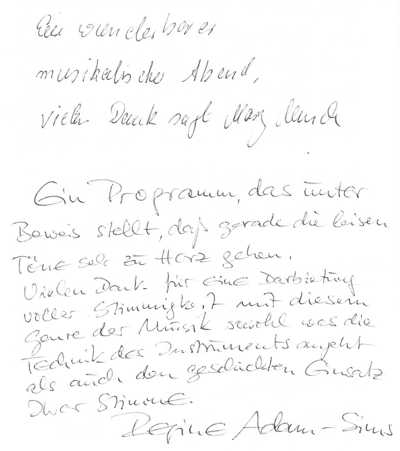 Ein wunderbarer
musikalischer Abend,
vielen Dank sagt
Ein Programm, das unter
Beweis stellt, daß gerade die leisen
Töne sehr zu Herz gehen.
Vielen Dank für eine Darbietung
voller Stimmigkeit mit diesem
Genre der Musik sowohl was die
Technik des Instruments angeht
als auch den geschickten Einsatz
Ihrer Stimme.
Regine Adam-Sims